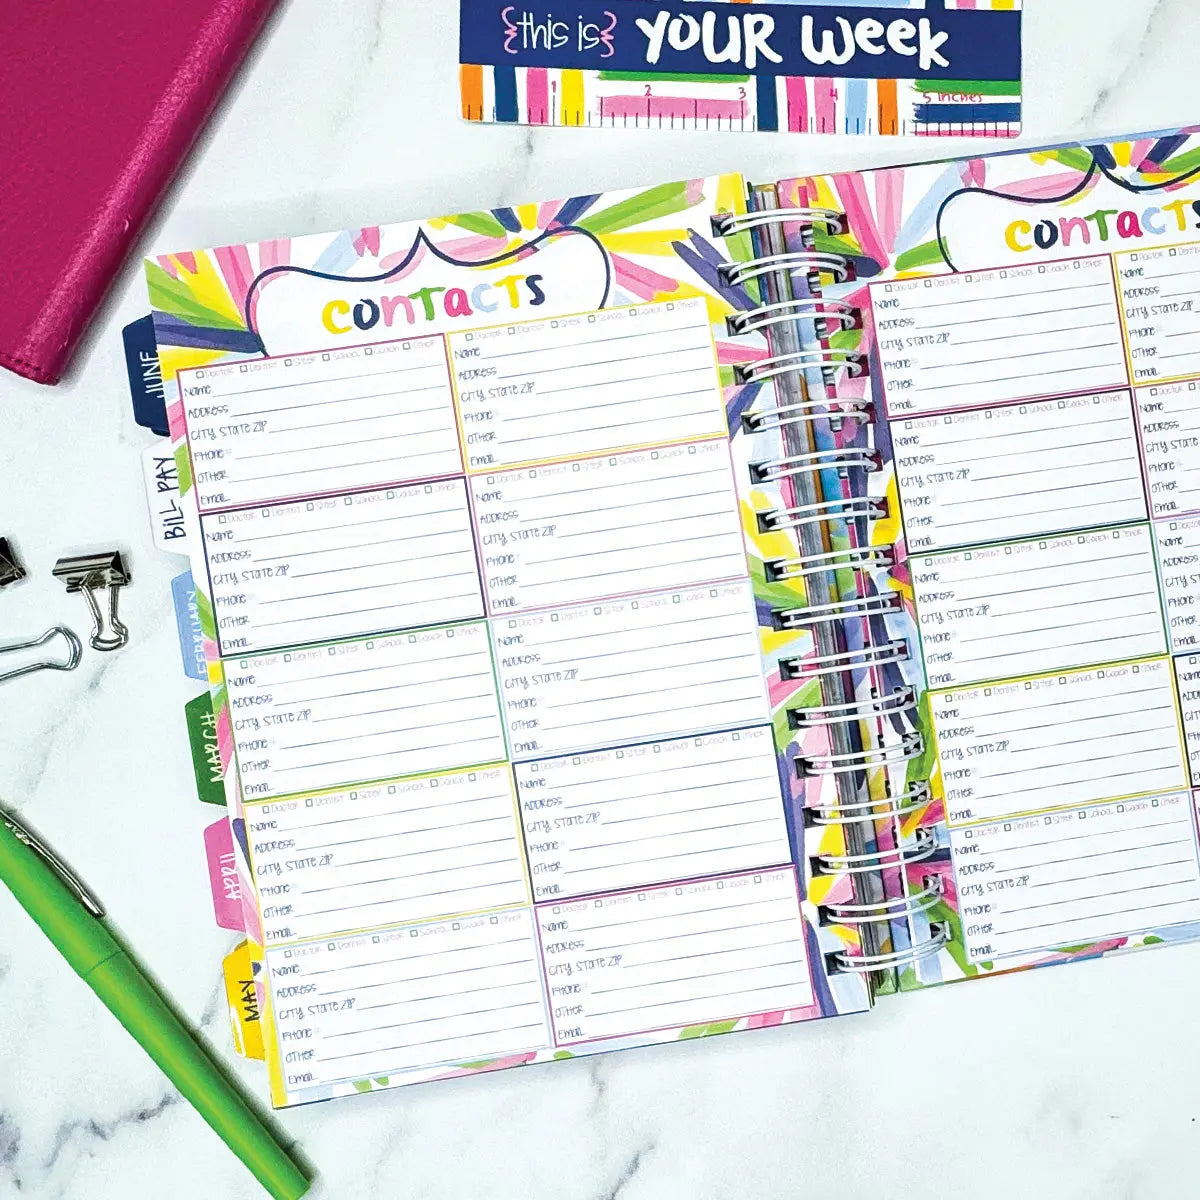 {this is} YOUR week
1 2 3 4 5 inches
contacts
Doctor Dentist Sitter School Coach Other
Name
Address
City State Zip
Phone
Other
Email
Doctor Dentist Sitter School Coach Other
Name
Address
City State Zip
Phone
Other
Email
Doctor Dentist Sitter School Coach Other
Name
Address
City State Zip
Phone
Other
Email
Doctor Dentist Sitter School Coach Other
Name
Address
City State Zip
Phone
Other
Email
Doctor Dentist Sitter School Coach Other
Name
Address
City State Zip
Phone
Other
Email
Doctor Dentist Sitter School Coach Other
Name
Address
City State Zip
Phone
Other
Email
Doctor Dentist Sitter School Coach Other
Name
Address
City State Zip
Phone
Other
Email
Doctor Dentist Sitter School Coach Other
Name
Address
City State Zip
Phone
Other
Email
Doctor Dentist Sitter School Coach Other
Name
Address
City State Zip
Phone
Other
Email
Doctor Dentist Sitter School Coach Other
Name
Address
City State Zip
Phone
Other
Email
contacts
Doctor Dentist Sitter School Coach Other
Name
Address
City State Zip
Phone
Other
Email
Doctor Dentist
Name
Address
City State Zip
Phone
Other
Email
Doctor Dentist Sitter School Coach Other
Name
Address
City State Zip
Phone
Other
Email
Doctor
Name
Address
City State
Phone
Other
Email
Doctor Dentist Sitter School Coach Other
Name
Address
City State Zip
Phone
Other
Email
Doctor
Name
Address
City State
Phone
Other
Email
Doctor Dentist Sitter School Coach Other
Name
Address
City State Zip
Phone
Other
Email
Doctor Dentist Sitter School Coach Other
Name
Address
City State Zip
Phone
Other
Email
JUNE
BILL PAY
FEBRUARY
MARCH
APRIL
MAY